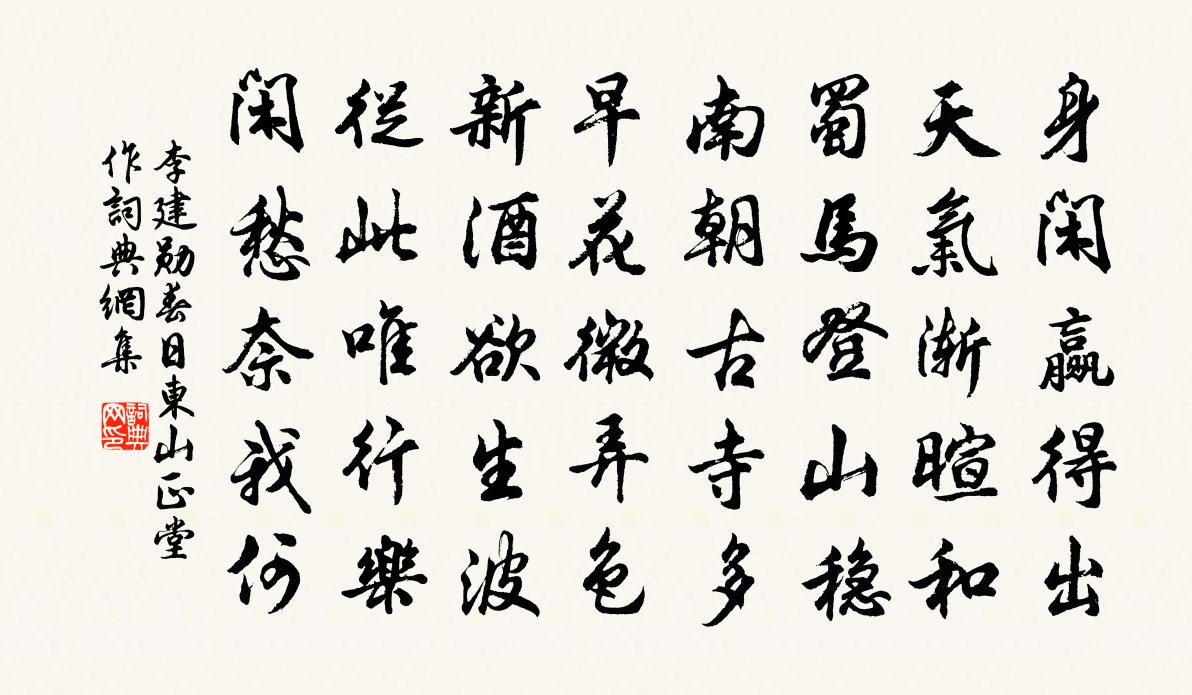 身閑贏得出
天氣漸暄和
蜀馬登山穩
南朝古寺多
早花微弄色
新酒欲生波
從此唯行樂
閑愁奈我何
李建勛春日東山正堂
作詞典網集
詞典
网印